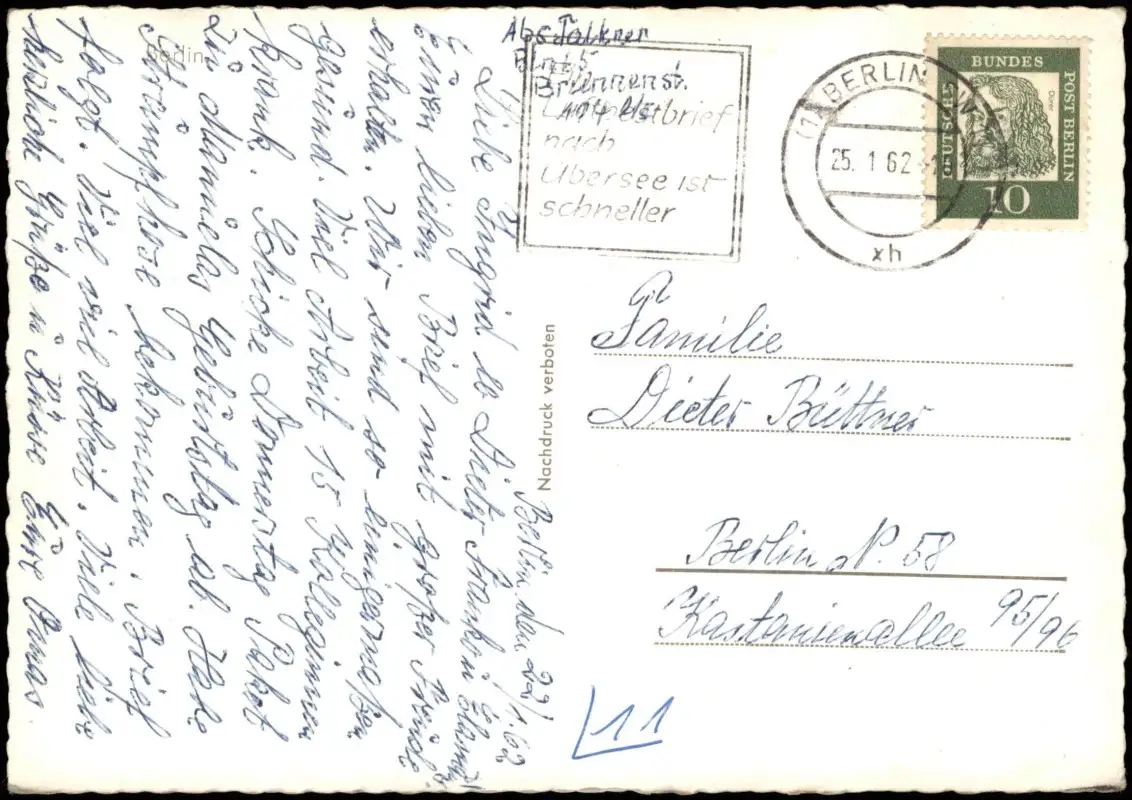 Abs Falkner
Brunnenst.
Luftpostbrief
nach
Übersee ist
schneller
BERLIN
25. 1 62
xh
DEUTSCHE BUNDES POST BERLIN
Dürer
10
Rodin
Nachdruck verboten
Berlin den 22/1.62
Liebe Ingrid lb Dieter
Euren lieben Brief mit großer Freude
erhalten. Wir sind so einigermaßen
gesund. Viel Arbeit 15 Kolleginnen
krank. Schicke Donnerstag Paket
zu Manuelas Geburtstag ab. Habe
Strumpfhose bekommen. Brief
folgt. Viel viel Arbeit. Viele liebe
herzliche Grüße u Küsse Eure Omas
Familie
Dieter Büttner
Berlin N. 58
Kastanienallee 95/96
11